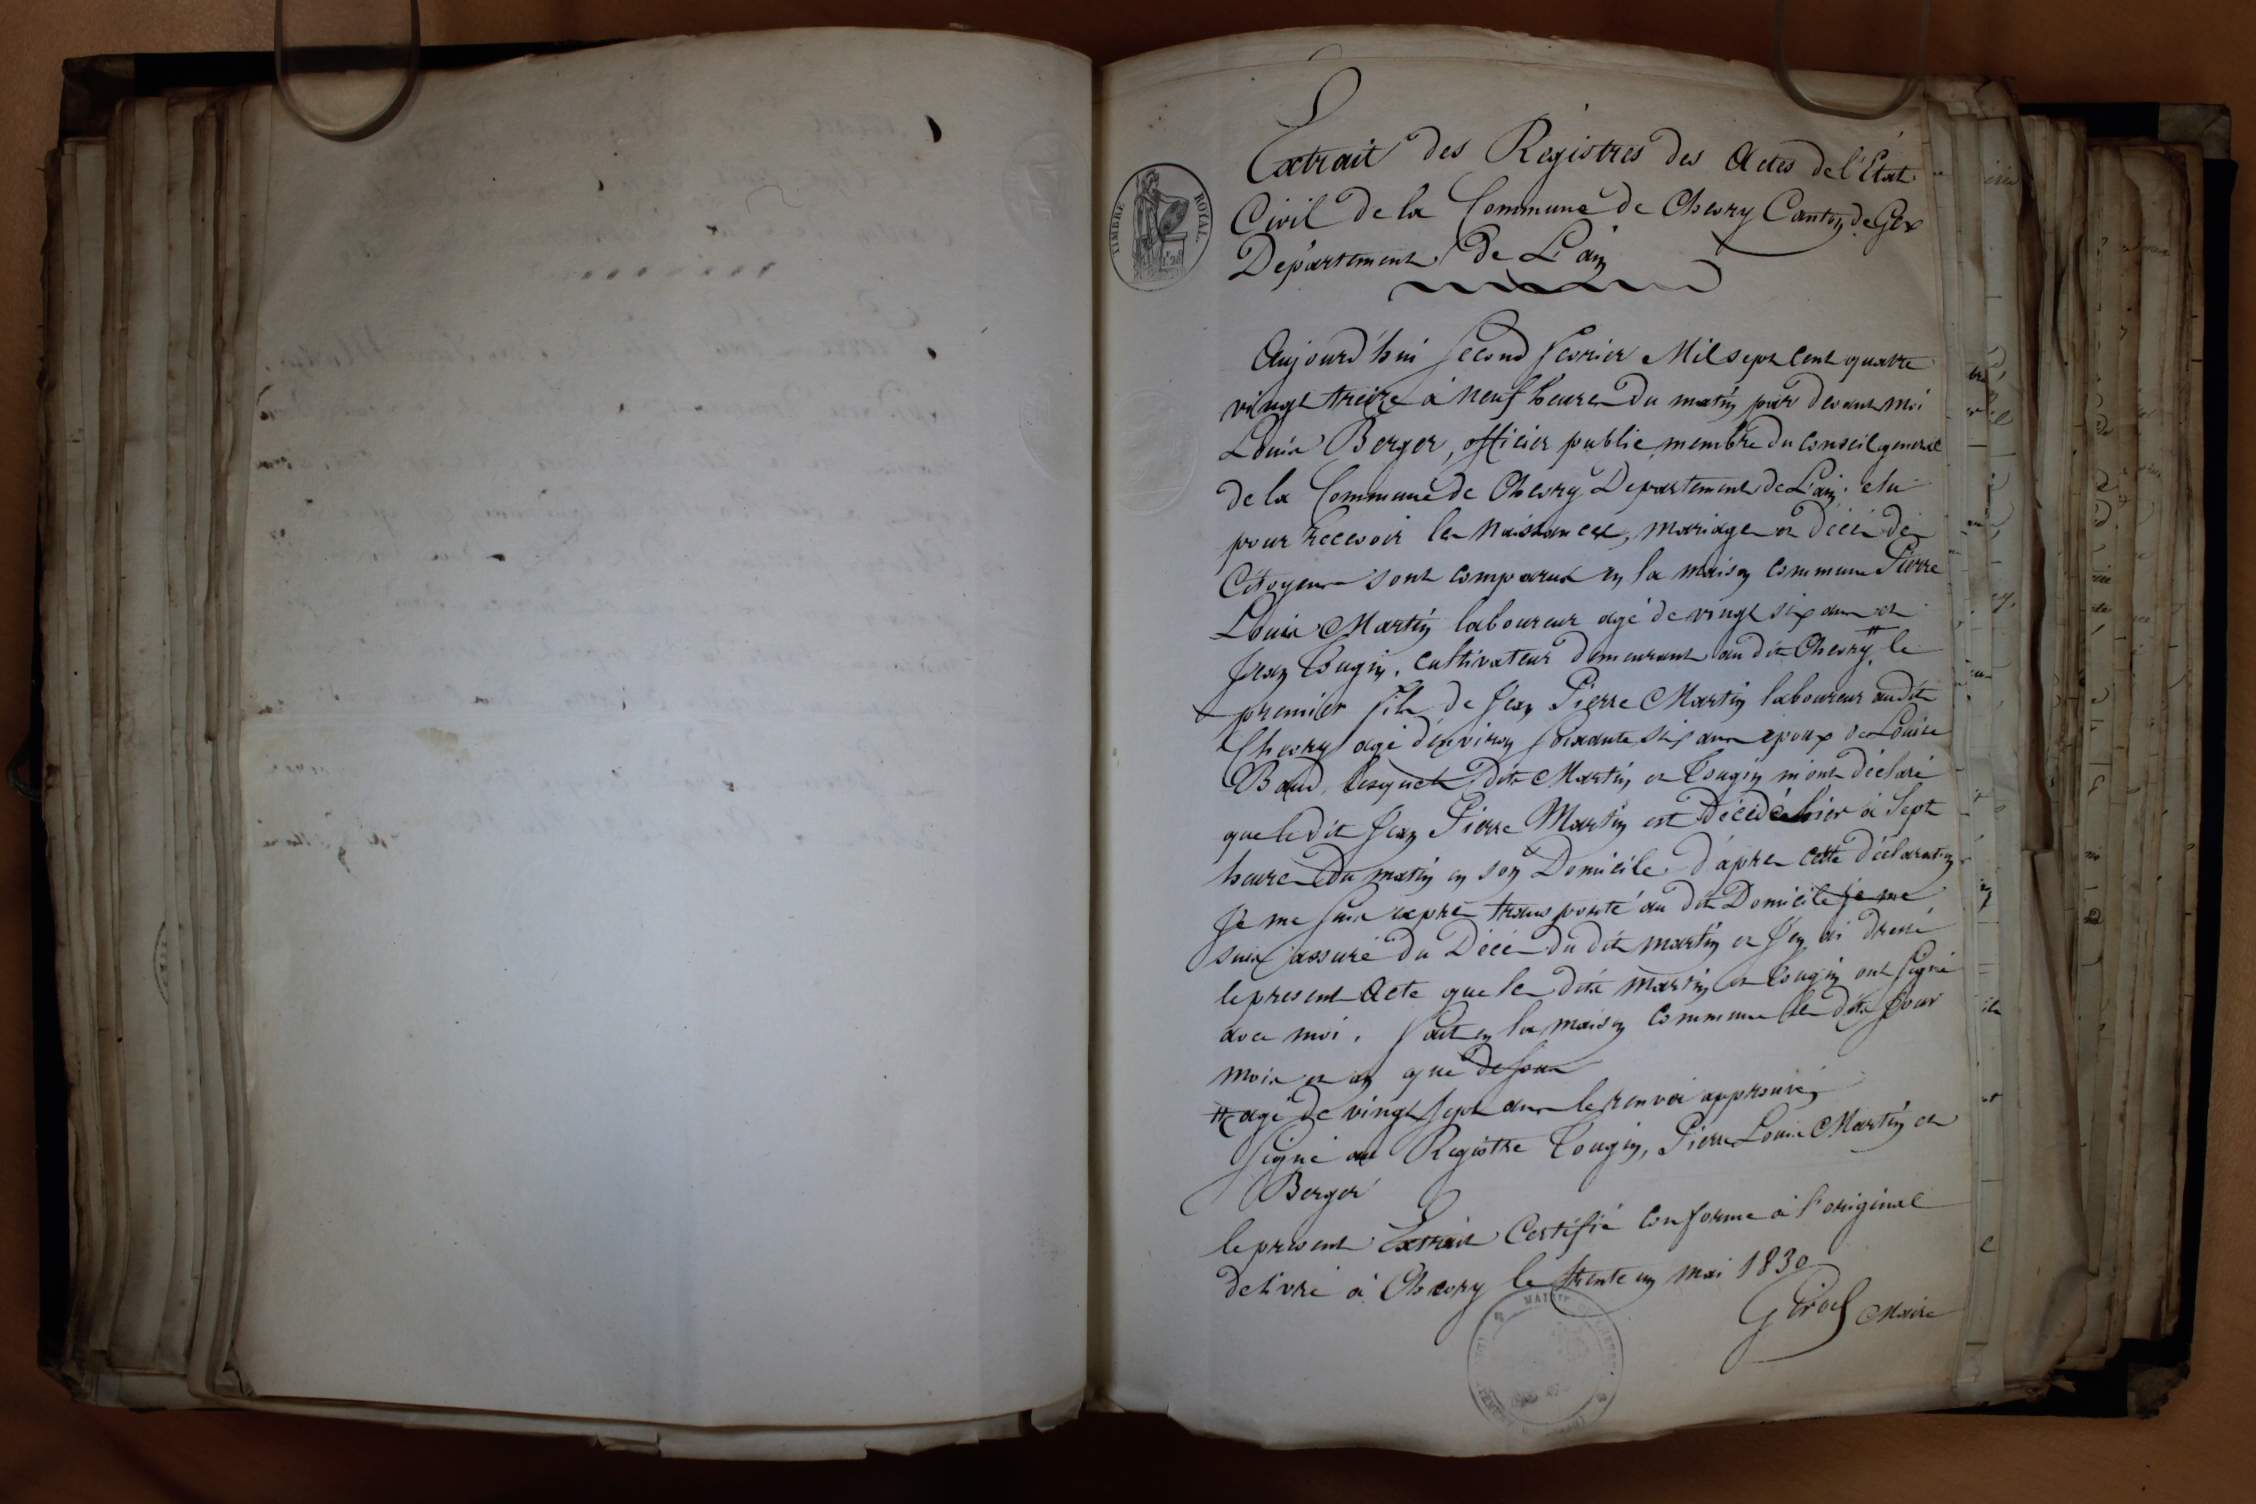 TIMBRE ROYAL
Extrait des Régistres des Actes de l'Etat
Civil de la Commune de Chevry Canton de Gex
Département de L'ain
Aujourd'hui second fevrier Mil sept cent quatre
vingt treize à neuf heures du matin par devant moi
Louis Berger, officier public membre du conseil general
de la Commune de Chevry Departement de L'ain elu
pour recevoir les Naissances, mariages et décès des
Citoyens sont comparus en la maison commune Pierre
Louis Martin laboureur agé de vingt six ans et
Jean Tougin, cultivateur demeurant au dit Chevry # le
premier fils de Jean Pierre Martin laboureur au dit
Chevry agé d'environ soixante six ans epoux de Louise
Baud, lesquels dits Martin et Tougin m'ont déclaré
que le dit Jean Pierre Martin est Décédé hier à Sept
heures du matin en son Domicile d'après cette déclaration
Je me suis après transporté au dit Domicile je me
suis assuré du Décès du dit martin et J'en ai dressé
le present Acte que les dits martin et Tougin ont signé
avec moi. fait en la maison commune les dits Jour
mois et an que dessus
# agé de vingt sept ans le renvoi approuvé
Signé au Registre Tougin, Pierre Louis Martin et
Berger
le present Extrait Certifié conforme à l'original
delivré à Chevry le trente un mai 1830
Girod Maire
MAIRIE